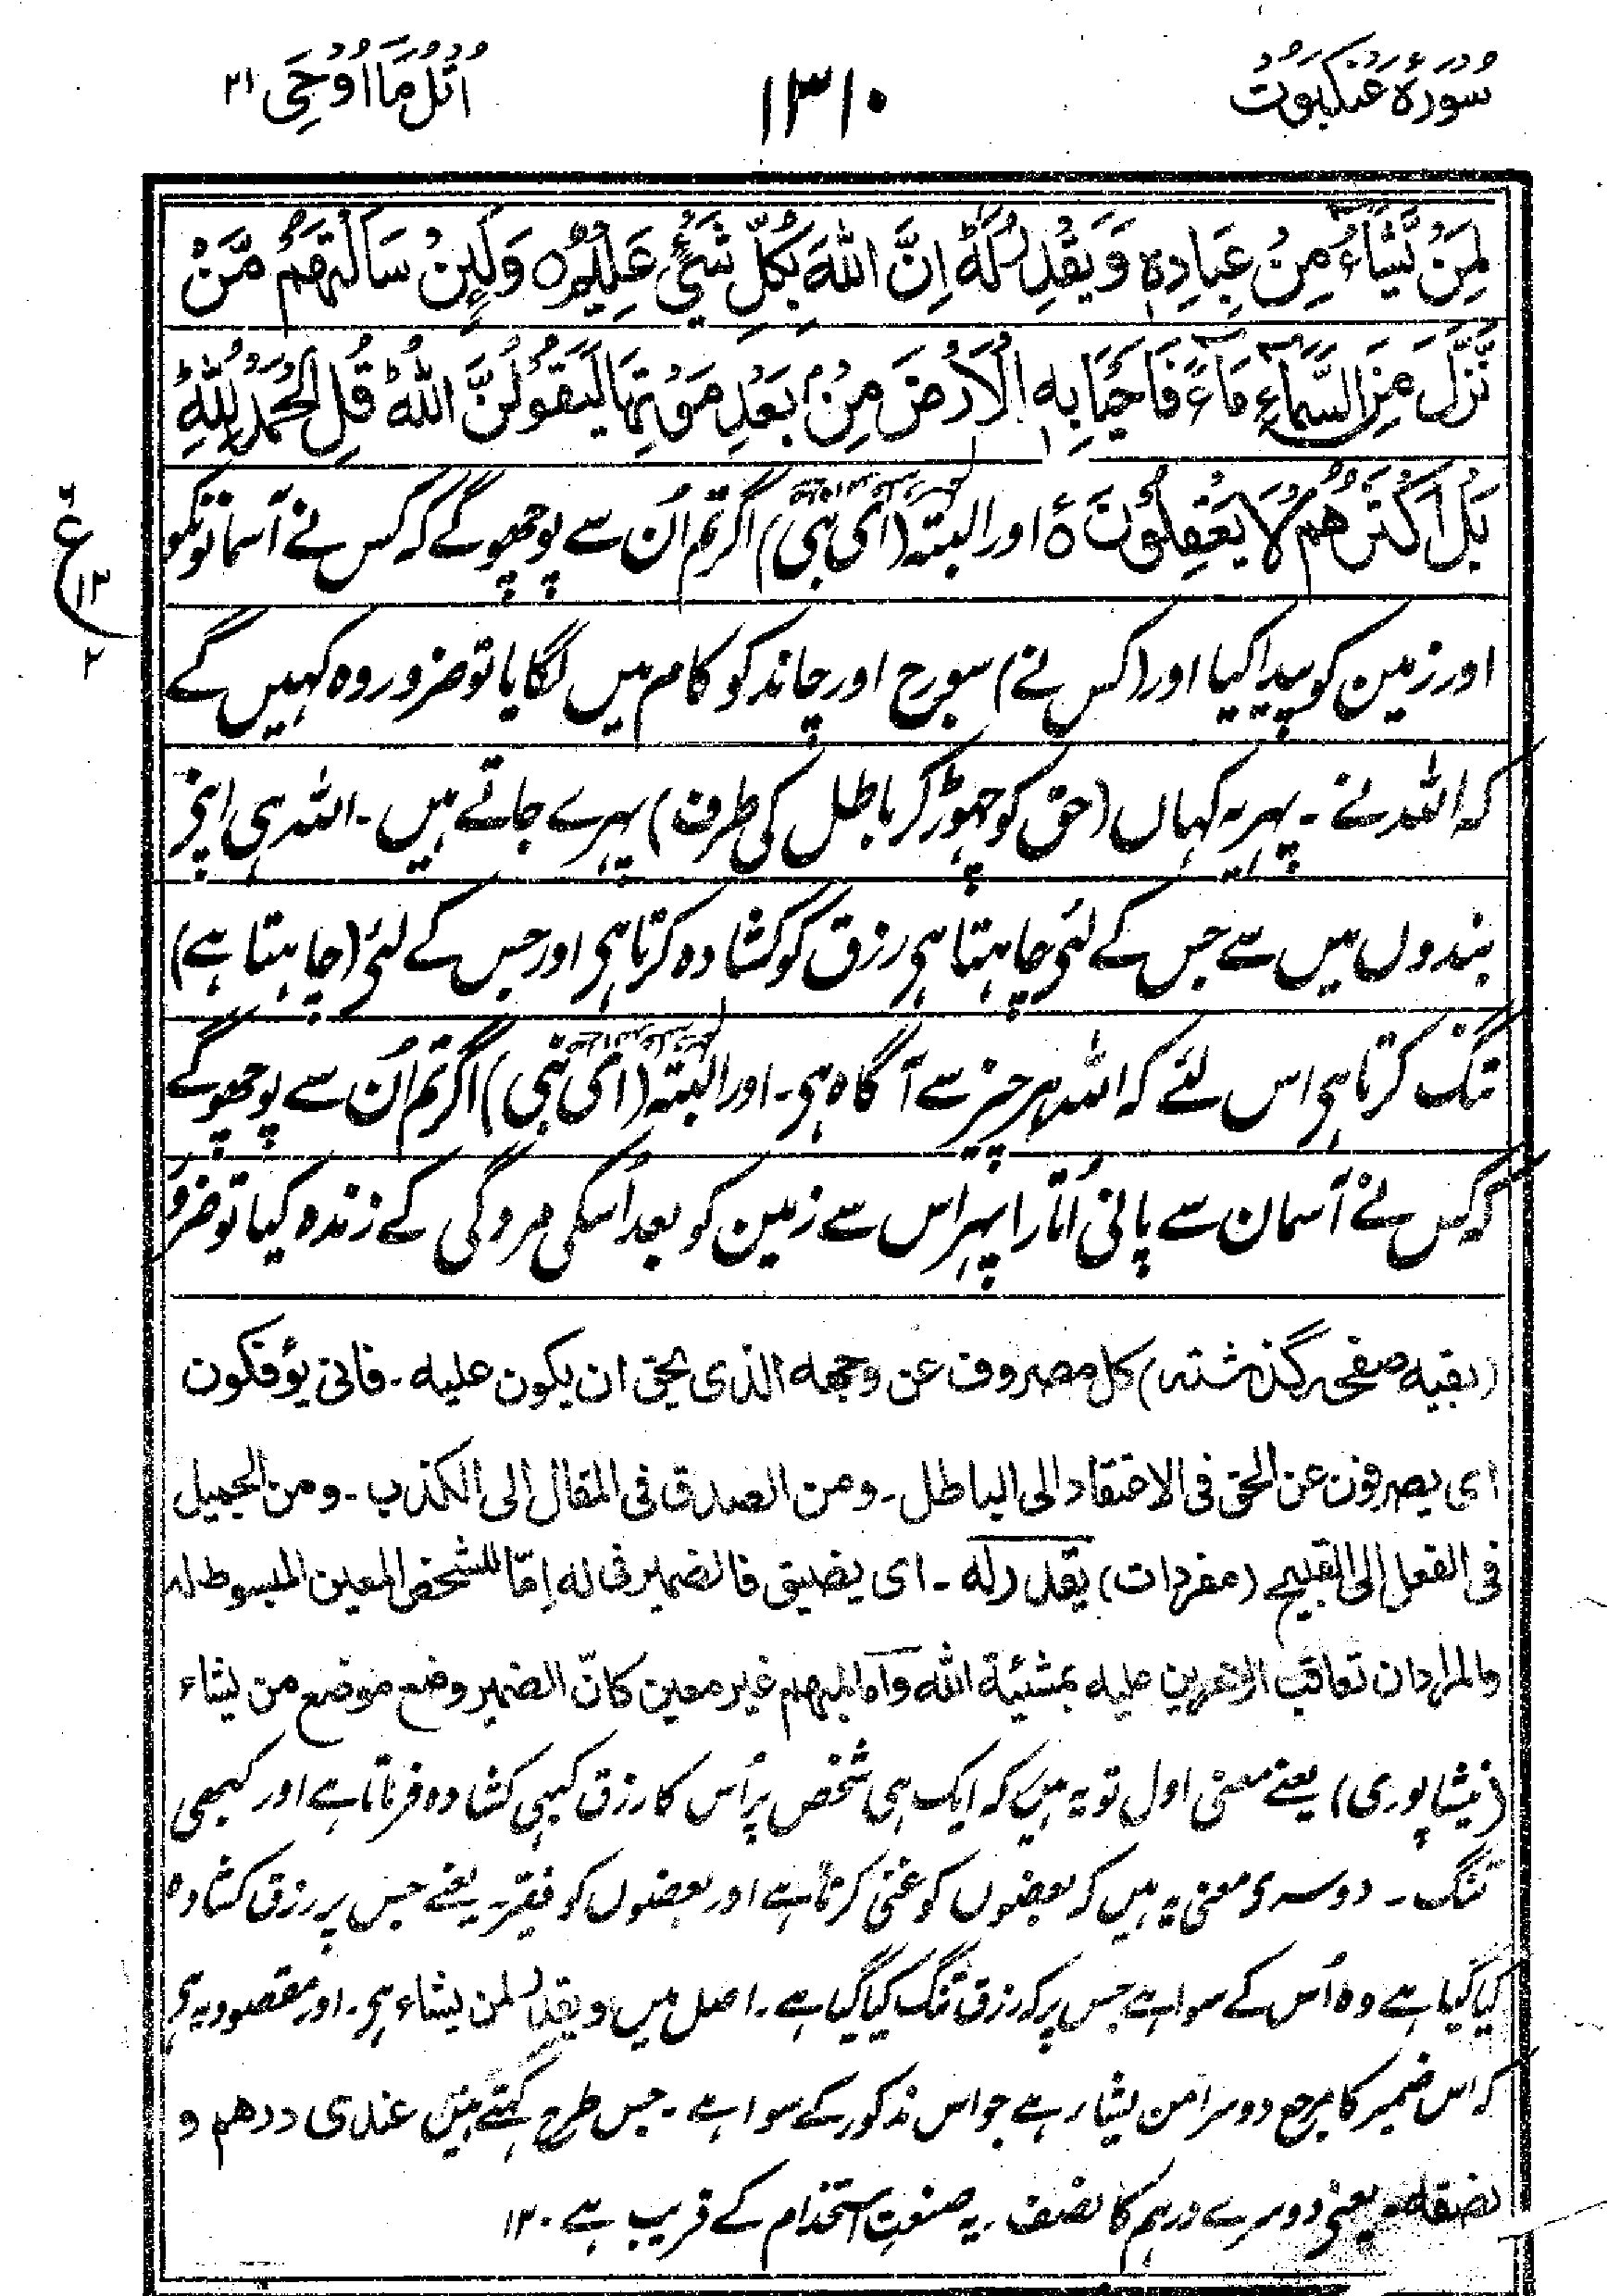 سُوْرَةُ عَنْكَبُوْت
١٣١٠
اُتْلُ مَا اُوْحِیَ ٢١
لِمَنْ يَّشَآءُ مِنْ عِبَادِهٖ وَ يَقْدِرُ لَهٗ ؕ اِنَّ اللّٰهَ بِكُلِّ شَيْءٍ عَلِيْمٌ ۝ وَ لَىِٕنْ سَاَلْتَهُمْ مَّنْ
نَّزَّلَ مِنَ السَّمَآءِ مَآءً فَاَحْيَا بِهِ الْاَرْضَ مِنْۢ بَعْدِ مَوْتِهَا لَيَقُوْلُنَّ اللّٰهُ ؕ قُلِ الْحَمْدُ لِلّٰهِ ؕ
بَلْ اَكْثَرُهُمْ لَا يَعْقِلُوْنَ ۝ اور البتہ (ای نبی) اگر تم اُن سے پوچھو گے کہ کس نے آسمانونکو
ع ١٣
٢
اور زمین کو پیدا کیا اور (کس نے) سورج اور چاند کو کام میں لگایا تو ضرور وہ کہیں گے
کہ اللہ نے ۔ پھر یہ کہاں (حق کو چھوڑ کر باطل کی طرف) پھرے جاتے ہیں ۔ اللہ ہی اپنے
بندوں میں سے جس کے لئی چاہتا ہی رزق کو کشادہ کرتا ہی اور جس کے لئی (چاہتا ہے)
تنگ کرتا ہی اس لئے کہ اللہ ہر چیز سے آگاہ ہی ۔ اور البتہ (ای نبی) اگر تم اُن سے پوچھو گے
کہ کس نے آسمان سے پانی اُتارا پھر اس سے زمین کو بعد اُسکی مردگی کے زندہ کیا تو ضرور
(بقیه صفحہ گذشتہ) کل مصروف عن وجهه الذی یحق ان یکون علیه ۔ فانی یؤفکون
ای یصرفون عن الحق فی الاعتقاد الی الباطل ۔ ومن الصدق فی المقال الی الکذب ۔ ومن الجمیل
فی الفعل الی القبیح (مفردات) یقدر له ۔ ای یضیق فالضمیر فی له اِمّا للشخص المعین المبسوط له
والمراد ان تعاقب الامرین علیه بمشیئة الله واما لمبهم غیر معین کانّ الضمیر وضع موضع من یشاء
(نیشاپوری) یعنے معنی اول تو یہ ہیں کہ ایک ہی شخص پر اُس کا رزق کبھی کشادہ فرماتا ہے اور کبھی
تنگ ۔ دوسرے معنی یہ ہیں کہ بعضوں کو غنی کرتا ہے اور بعضوں کو فقیر ۔ یعنے جس پر رزق کشادہ
کیا گیا ہے وہ اُس کے سوا ہے جس پر کہ رزق تنگ کیا گیا ہے ۔ اصل میں و یقدر لمن یشاء ہی ۔ اور مقصود یہ ہی
کہ اس ضمیر کا مرجع دوسرا من یشاء ہے جو اس مذکور کے سوا ہے ۔ جس طرح کہتے ہیں عندی درهم و
نصفه یعنی دوسرے درہم کا نصف ۔ یہ صنعتِ استخدام کے قریب ہے ۔ ١٢